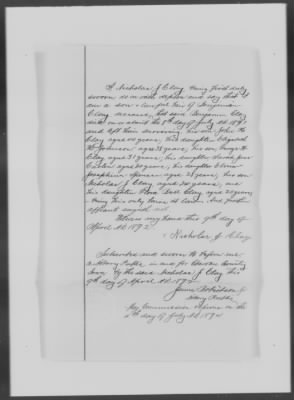 I Nicholas J. Clay being first duly
sworn on oath depose and say that I
am a son & lawful heir of Benjamin
Clay deceased, that said Benjamin Clay
died on or about the day of July AD 189
and left him surviving his son John H.
Clay aged years, his daughter Elizabeth
Johnson aged 38 years, his son George H.
Clay aged 31 years, his daughter
Carter aged years, his daughter
Josephine Spencer aged 28 years, his son
Nicholas J. Clay aged years, and
his daughter Bell Clay aged years
being his only heirs at law. And further
affiant sayeth not.
Witness my hand this 9th day of
April AD 189
Nicholas J. Clay
Subscribed and sworn to before me
a Notary Public in and for County
Iowa by the said Nicholas J. Clay this
9th day of April AD 189
James
Notary Public
My Commission expires on the
4th day of July AD 189